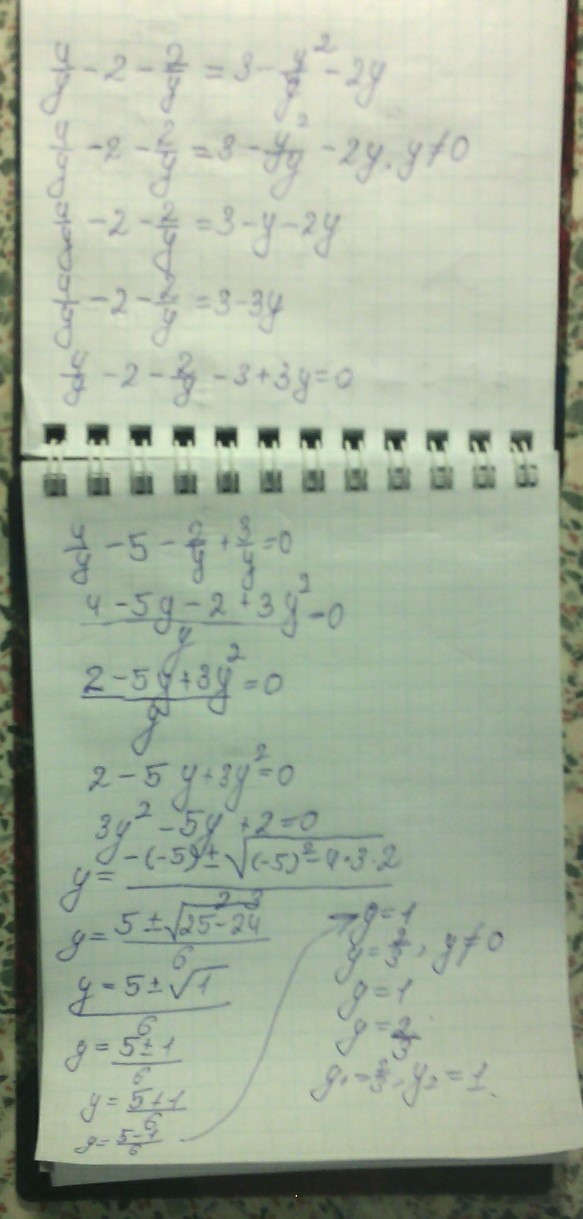 4/y - 2 - 2/y = 3 - y²/y - 2y
4/y - 2 - 2/y = 3 - y²/y - 2y, y≠0
4/y - 2 - 2/y = 3 - y - 2y
4/y - 2 - 2/y = 3 - 3y
4/y - 2 - 2/y - 3 + 3y = 0
4/y - 5 - 2/y + 3/y = 0
(4 - 5y - 2 + 3y²)/y = 0
(2 - 5y + 3y²)/y = 0
2 - 5y + 3y² = 0
3y² - 5y + 2 = 0
y = (-(-5) ± √((-5)² - 4·3·2))/(2·3)
y = (5 ± √(25 - 24))/6
y = (5 ± √1)/6
y = (5 ± 1)/6
y = (5 + 1)/6
y = (5 - 1)/6
y = 1
y = 2/3, y≠0
y = 1
y = 2/3
y₁ = 2/3, y₂ = 1.